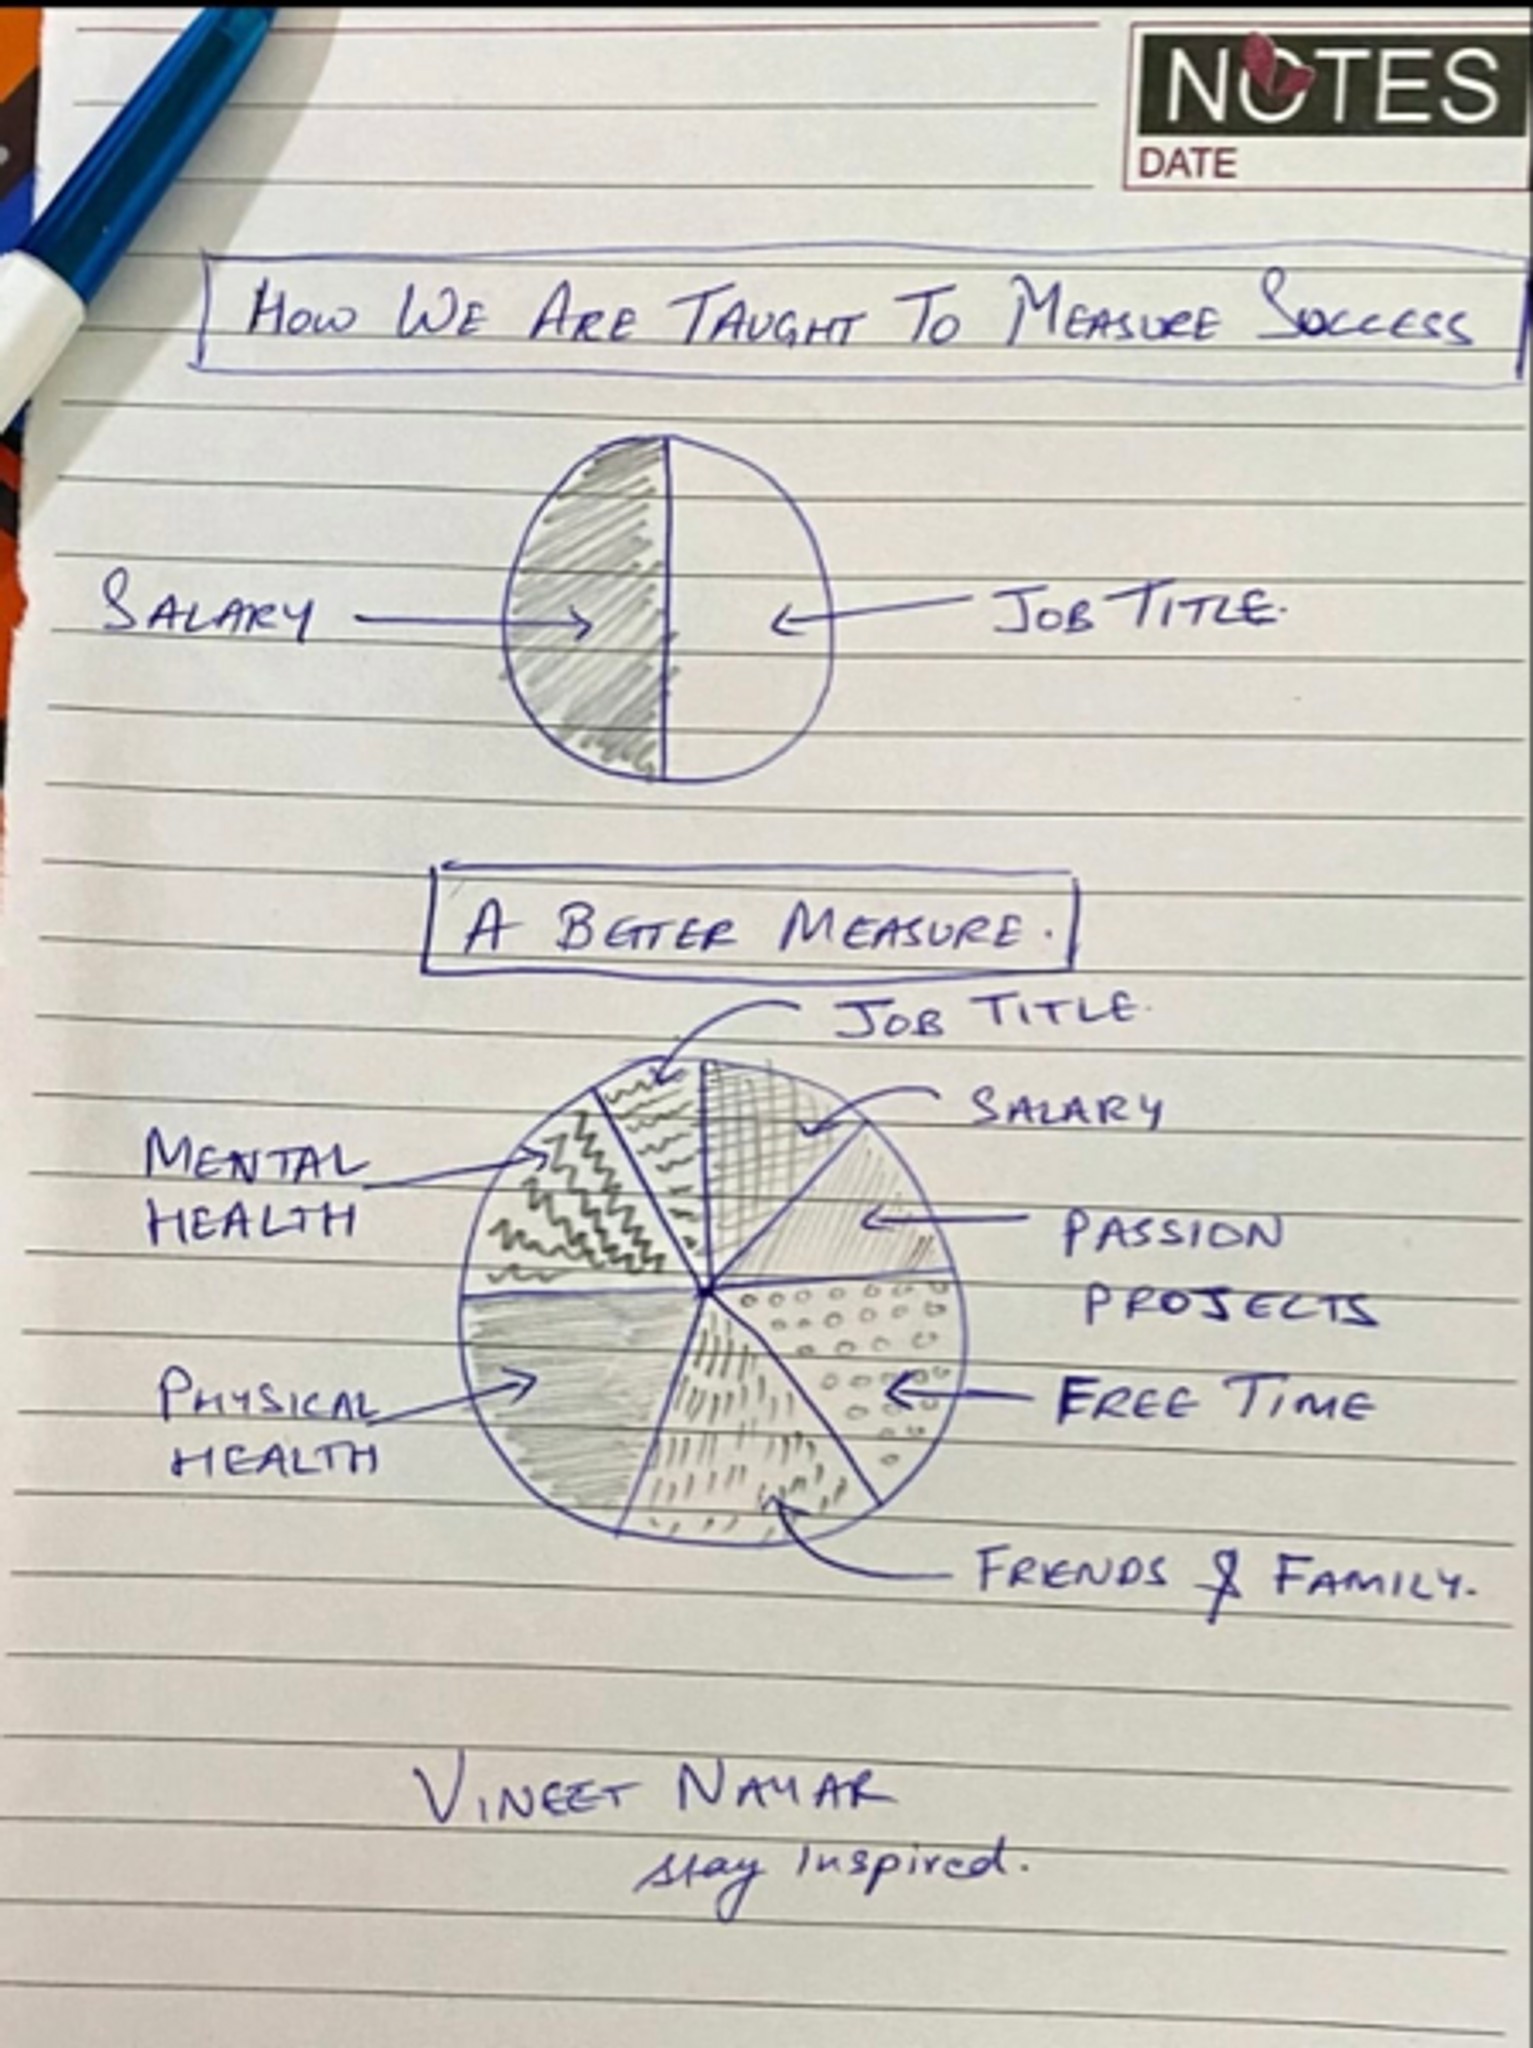 NOTES
DATE
HOW WE ARE TAUGHT TO MEASURE SUCCESS
SALARY
JOB TITLE.
A BETTER MEASURE.
JOB TITLE.
SALARY
MENTAL
HEALTH
PASSION
PROJECTS
PHYSICAL
HEALTH
FREE TIME
FRIENDS & FAMILY.
VINEET NAYAR
stay inspired.